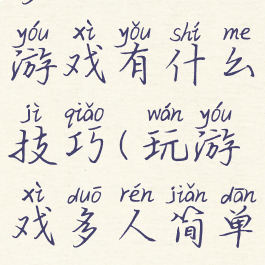 yóu xì yǒu shí me
游戏有什么
jì qiǎo wán yóu
技巧(玩游
xì duō rén jiǎn dān
戏多人简单